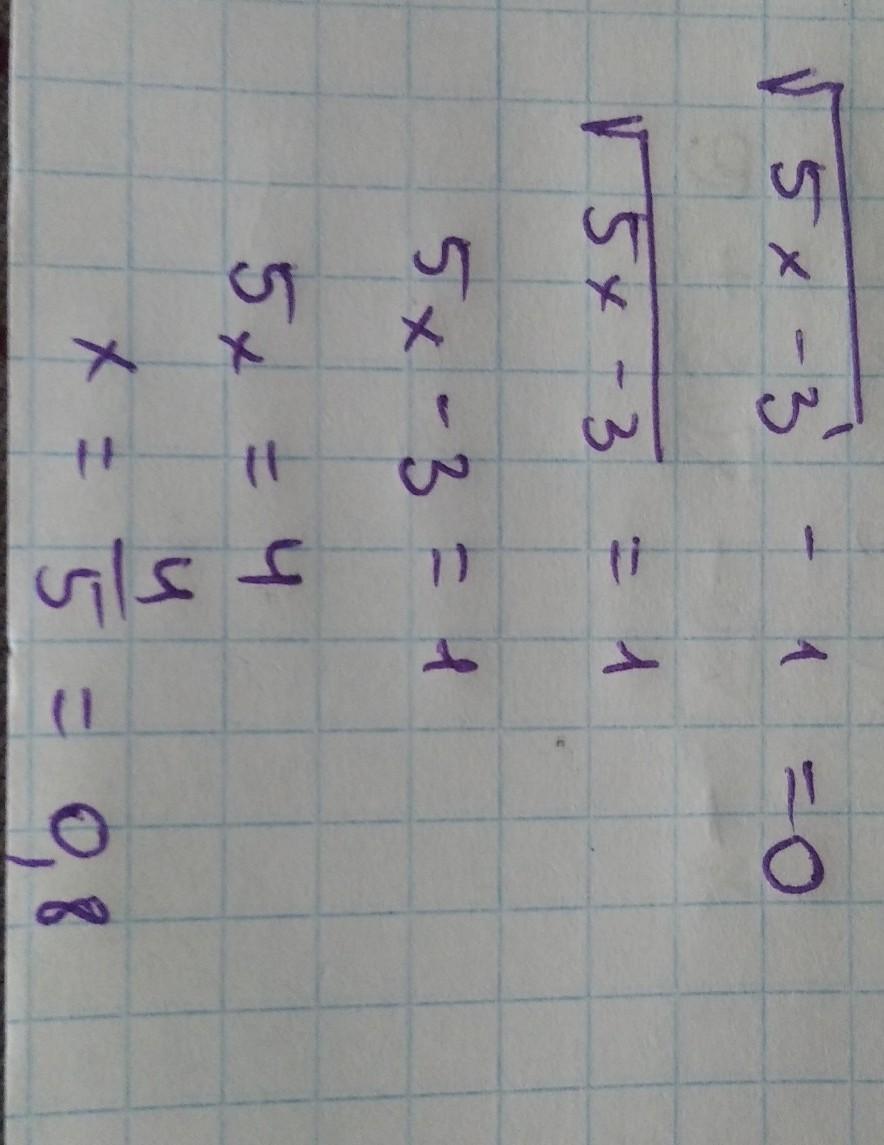 √5x-3 - 1 = 0
√5x-3 = 1
5x-3 = 1
5x = 4
x = 4/5 = 0,8